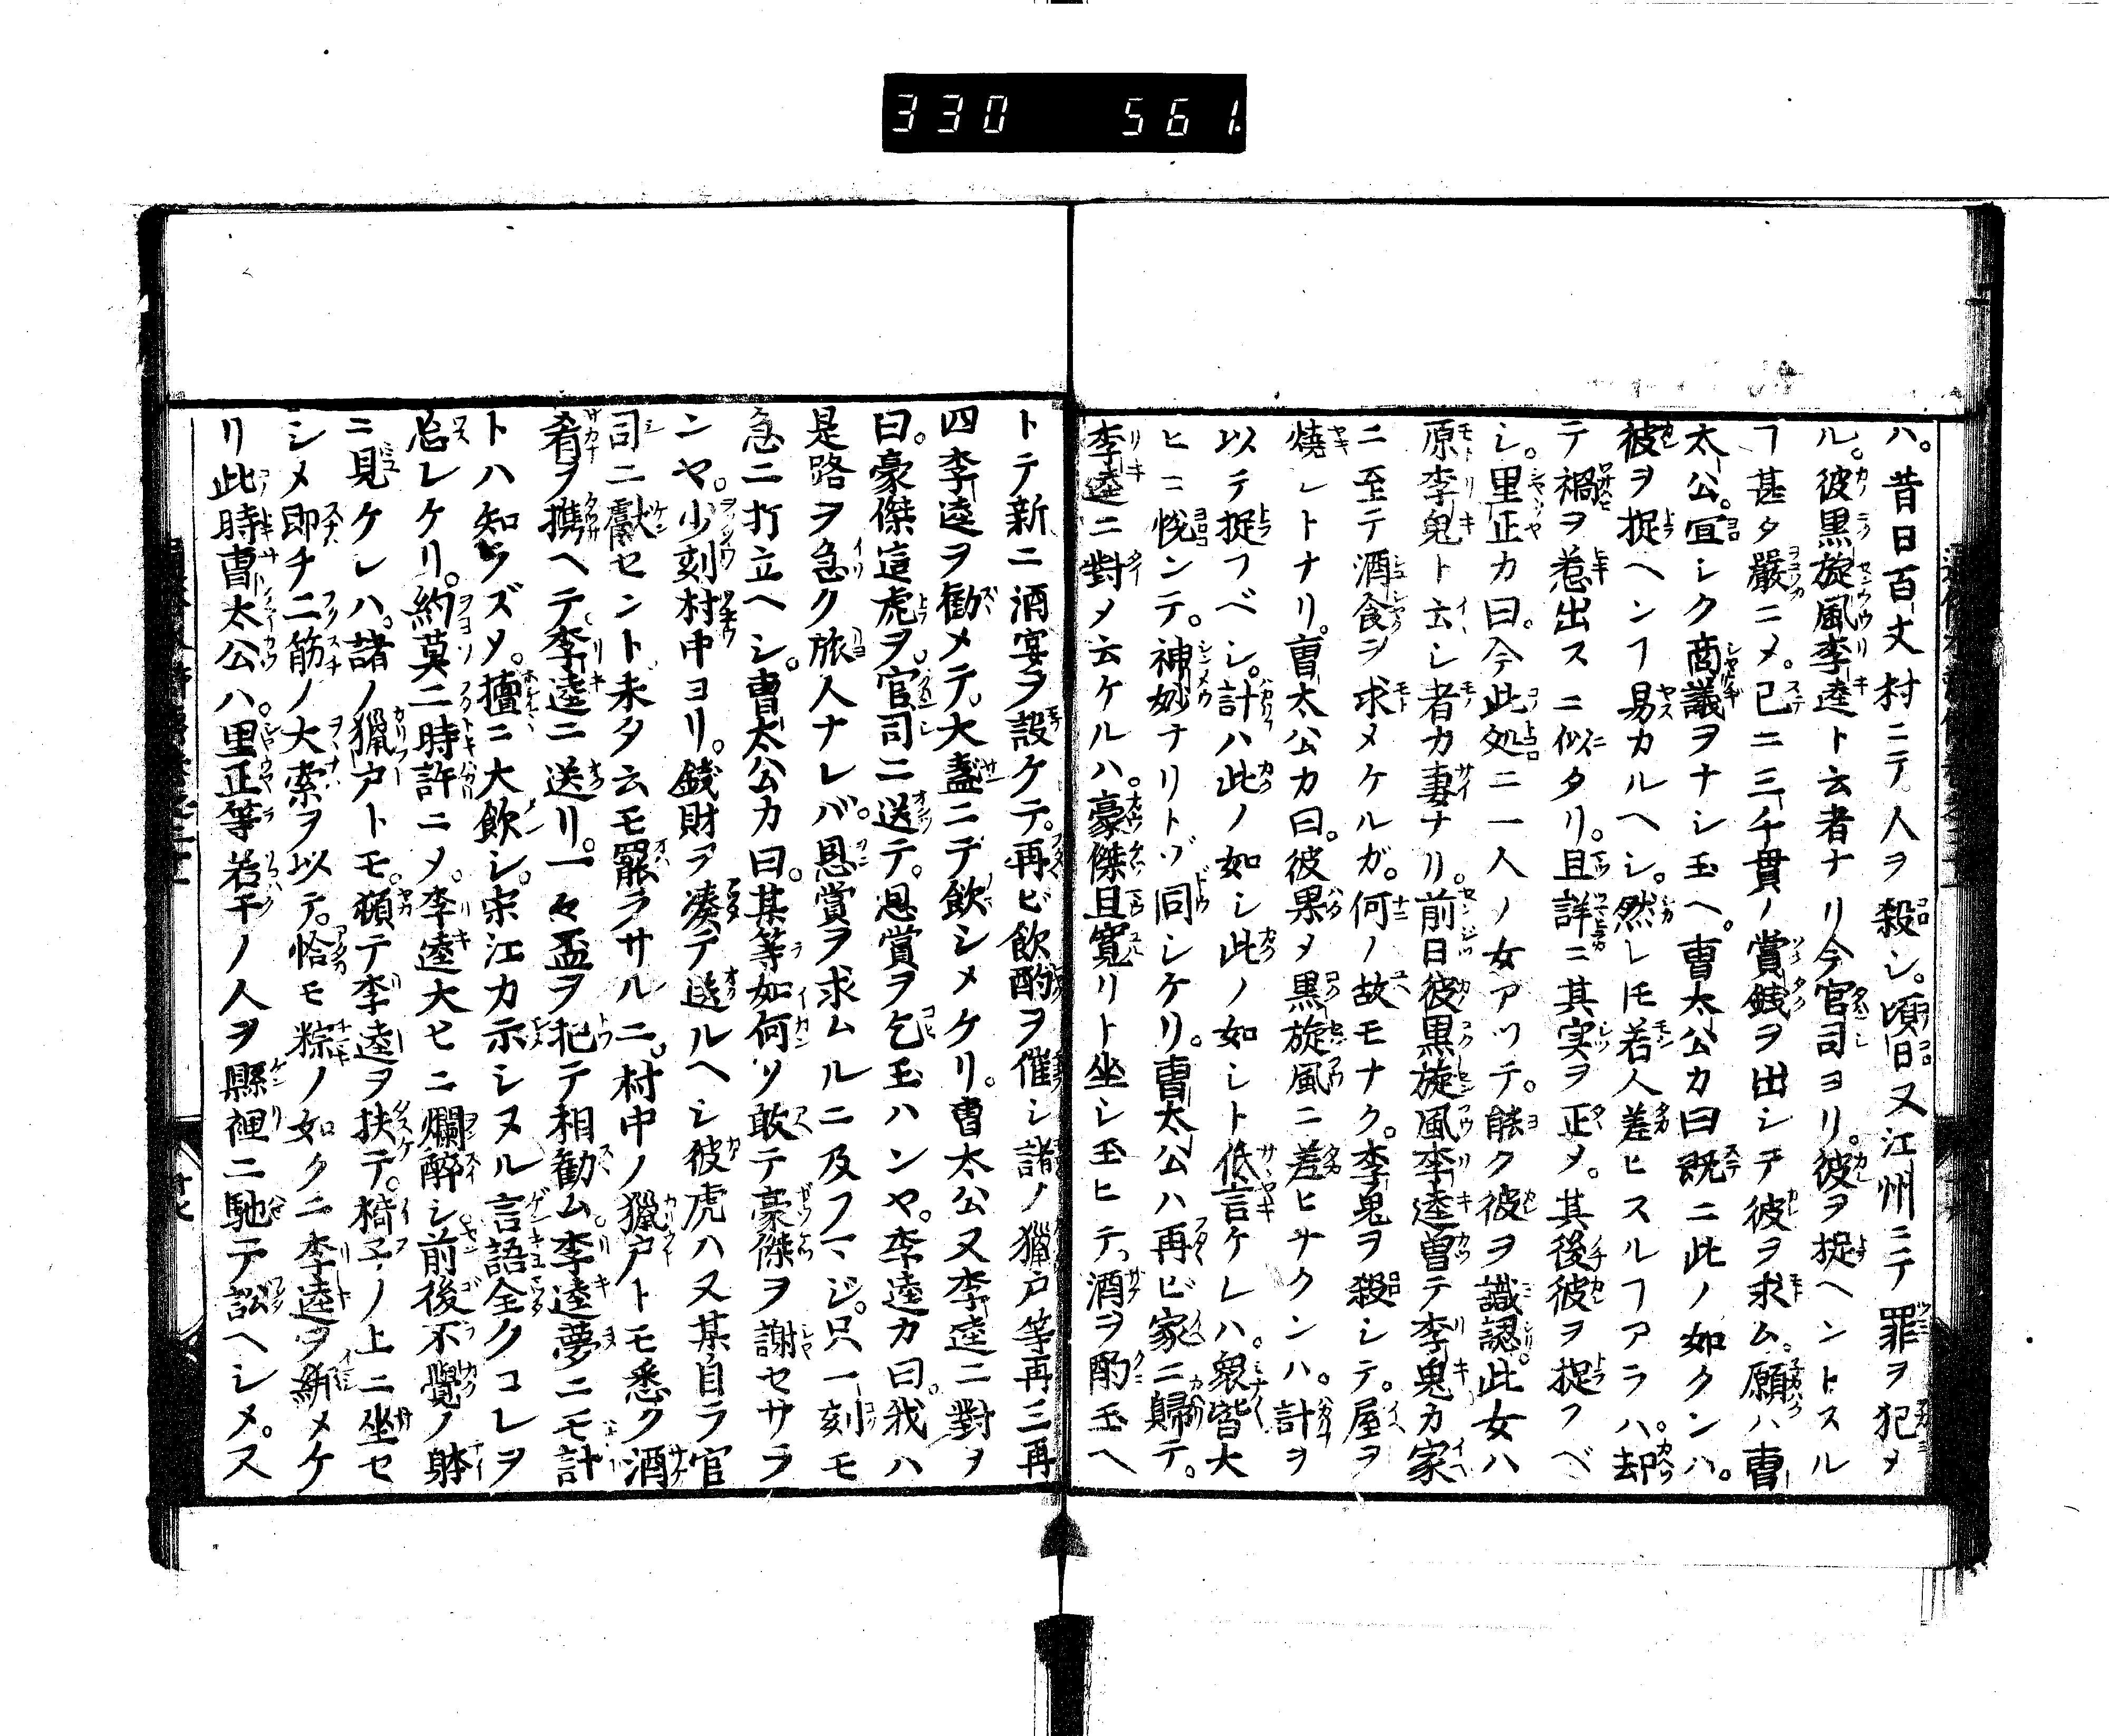 330 561.
ハ。昔日百丈村ニテ人ヲ殺シ。頃日又江州ニテ罪ヲ犯メ
ル。彼黒旋風李逵ト云者ナリ今官司ヨリ。彼ヲ捉ヘントスル
ヿ甚タ嚴ニメ。已ニ三千貫ノ賞銭ヲ出シテ彼ヲ求ム。願ハ曹
太公。宜シク商議ヲナシ玉ヘ。曹太公カ曰既ニ此ノ如クンハ。
彼ヲ捉ヘンヿ易カルヘシ。然レ𪜈若人差ヒスルヿアラハ。却
テ禍ヲ惹出スニ似タリ。且詳ニ其実ヲ正メ。其後彼ヲ捉フベ
シ。里正カ曰。今此処ニ一人ノ女アツテ。能ク彼ヲ識認。此女ハ
原李鬼ト云シ者カ妻ナリ。前日彼黒旋風李逵曽テ李鬼カ家
ニ至テ酒食ヲ求メケルガ。何ノ故モナク。李鬼ヲ殺シテ。屋ヲ
燒レトナリ。曹太公カ曰。彼果タ黒旋風ニ差ヒナクンハ。計ヲ
以テ捉フベシ。計ハ此ノ如シ此ノ如シト低言ケレハ。衆皆大
ヒニ悦ンテ。神妙ナリトゾ同シケリ。曹太公ハ再ビ家ニ歸テ。
李逵ニ對メ云ケルハ。豪傑且寛リト坐シ玉ヒテ。酒ヲ酌玉ヘ
トテ新ニ酒宴ヲ設ケテ。再ビ飲酌ヲ催シ諸ノ獵戸等再三再
四李逵ヲ勧メテ。大盞ニテ飲シメケリ。曹太公又李逵ニ對ヲ
曰。豪傑這虎ヲ。官司ニ送テ。恩賞ヲ乞玉ハンヤ。李逵カ曰。我ハ
是路ヲ急ク旅人ナレバ。恩賞ヲ求ムルニ及フマジ。只一刻モ
急ニ打立ヘシ。曹太公カ曰。某等如何ソ敢テ豪傑ヲ謝セサラ
ンヤ。少刻村中ヨリ。銭財ヲ湊テ送ルヘシ彼虎ハ又某自ラ官
司ニ獻セント未タ云モ罷ラサルニ。村中ノ獵戸トモ悉ク酒
肴ヲ携ヘテ。李逵ニ送リ。一々盃ヲ把テ相勧ム。李逵夢ニモ計
トハ知ラズメ。擅ニ大飲シ。宋江カ示シヌル言語全クコレヲ
忘レケリ。約莫二時許ニメ。李逵大ヒニ爛醉シ前後不覺ノ躰
ニ見ケレハ。諸ノ獵戸トモ。頓テ李逵ヲ扶テ。椅子ノ上ニ坐セ
シメ即チ二筋ノ大索ヲ以テ。恰モ粽ノ如クニ李逵ヲ綁メケ
リ此時曹太公ハ。里正等若干ノ人ヲ縣裡ニ馳テ訟ヘシメ。ス